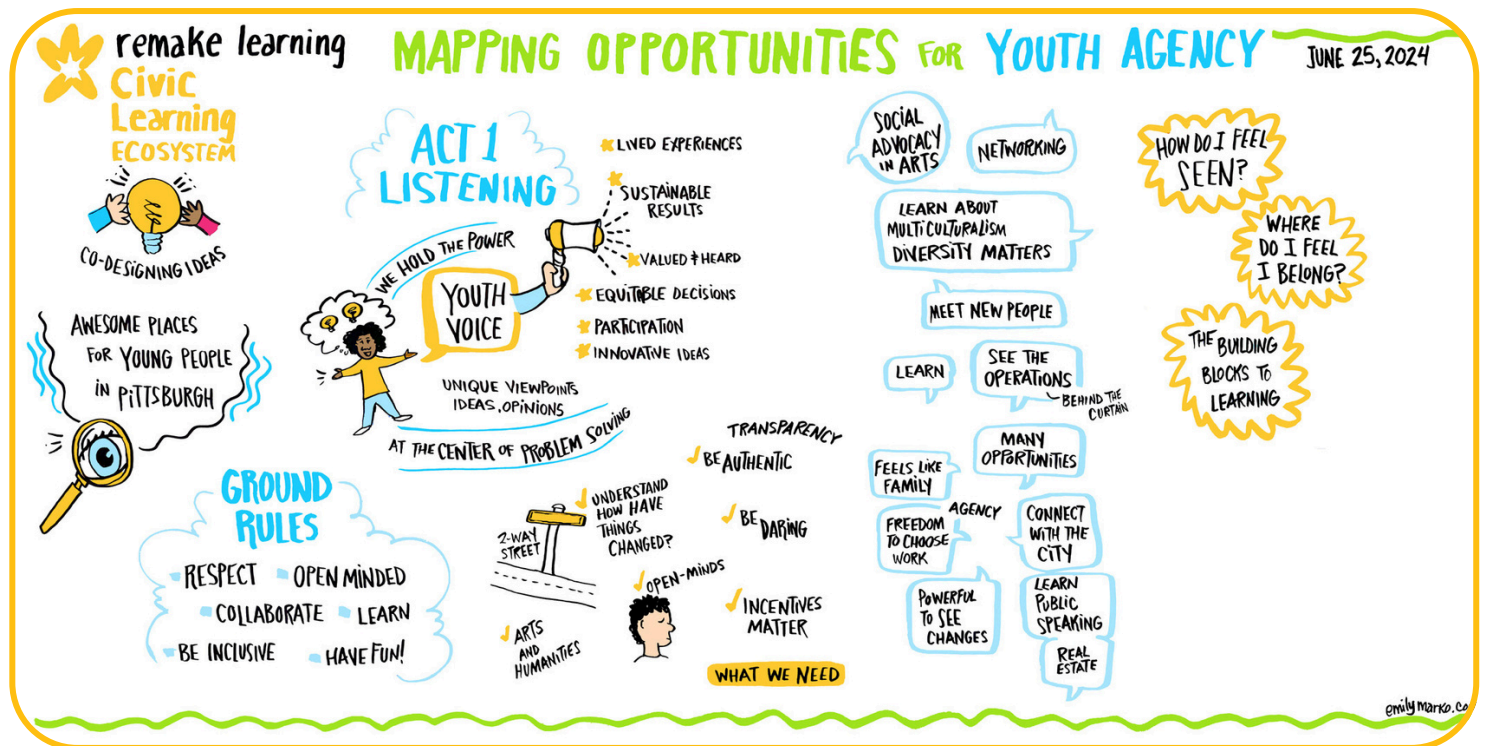 remake learning
Civic
Learning
ECOSYSTEM
CO-DESIGNING IDEAS
MAPPING OPPORTUNITIES FOR YOUTH AGENCY
JUNE 25, 2024
AWESOME PLACES
FOR YOUNG PEOPLE
IN PITTSBURGH
ACT 1
LISTENING
WE HOLD THE POWER
YOUTH
VOICE
LIVED EXPERIENCES
SUSTAINABLE
RESULTS
VALUED & HEARD
EQUITABLE DECISIONS
PARTICIPATION
INNOVATIVE IDEAS
UNIQUE VIEWPOINTS
IDEAS, OPINIONS
AT THE CENTER OF PROBLEM SOLVING
GROUND
RULES
RESPECT
OPEN MINDED
COLLABORATE
LEARN
BE INCLUSIVE
HAVE FUN!
2-WAY
STREET
UNDERSTAND
HOW HAVE
THINGS
CHANGED?
ARTS
AND
HUMANITIES
OPEN-MINDS
TRANSPARENCY
BE AUTHENTIC
BE DARING
INCENTIVES
MATTER
WHAT WE NEED
SOCIAL
ADVOCACY
IN ARTS
NETWORKING
LEARN ABOUT
MULTICULTURALISM
DIVERSITY MATTERS
MEET NEW PEOPLE
LEARN
SEE THE
OPERATIONS
BEHIND THE
CURTAIN
MANY
OPPORTUNITIES
FEELS LIKE
FAMILY
AGENCY
FREEDOM
TO CHOOSE
WORK
CONNECT
WITH THE
CITY
POWERFUL
TO SEE
CHANGES
LEARN
PUBLIC
SPEAKING
REAL
ESTATE
HOW DO I FEEL
SEEN?
WHERE
DO I FEEL
I BELONG?
THE BUILDING
BLOCKS TO
LEARNING
emilymarko.co